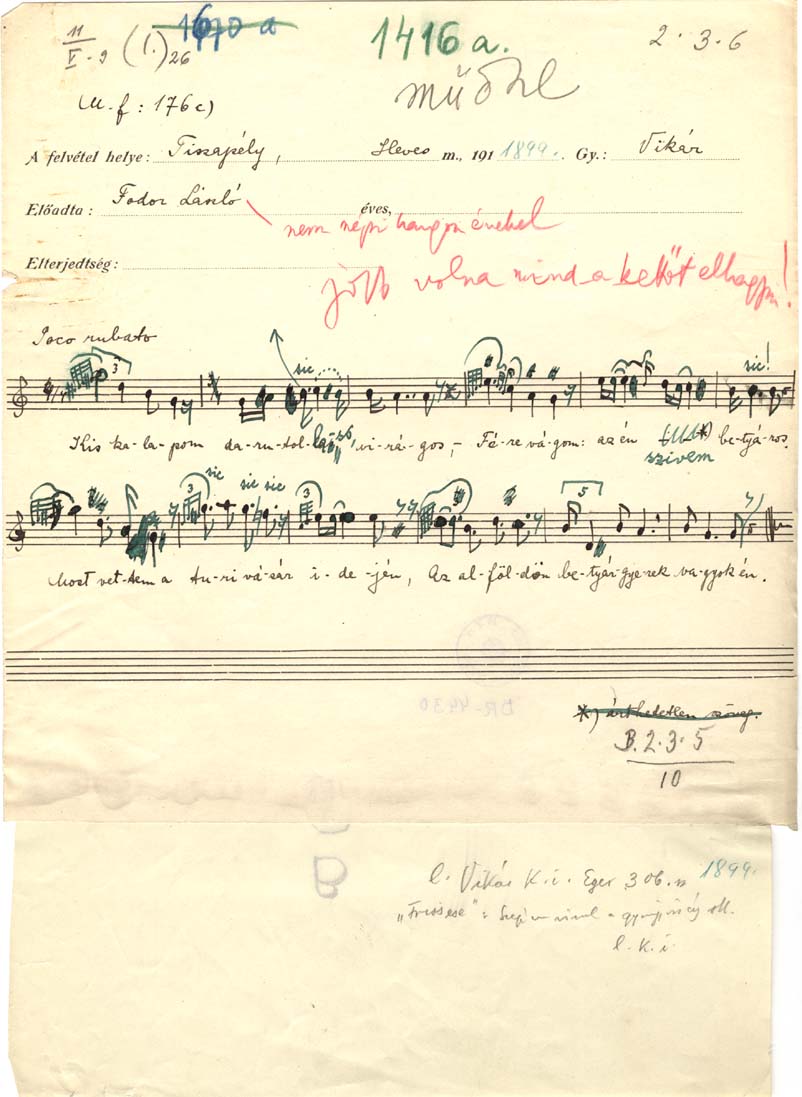 11
V-9 (I.) 26
1670 a
1416 a.
2.3.6
műdal
M.f: 176c)
A felvétel helye: Tiszapély, Heves m., 191 1899. Gy.: Vikár
Előadta: Fodor László éves,
nem népi hangon énekel
Elterjedtség:
jobb volna mind a kettőt elhagyni!
Poco rubato
3 sic sic!
Kis ka-la-pom da-ru-tol-las, vi-rá-gos, - Fé-re vá-gom: az én *) be-tyáros.
szivem
3 sic sic sic 3 5
Most vet-tem a tu-ri vá-sár i-de-jén, Az al-föl-dön be-tyár-gye-rek va-gyok én.
DR-4430
*) érthetetlen szöveg.
B. 2.3.5
10
B
l. Vikár K.i. Eger 306. 1899.
l. K.i.